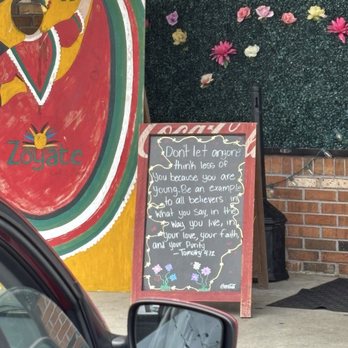 Zoyate
Coca-Cola
Don't let anyone
think less of
you because you are
young. Be an example
to all believers in
what you say, in the
way you live, in
your love, your faith
and your Purity
- Timothy 4:12
Coca-Cola